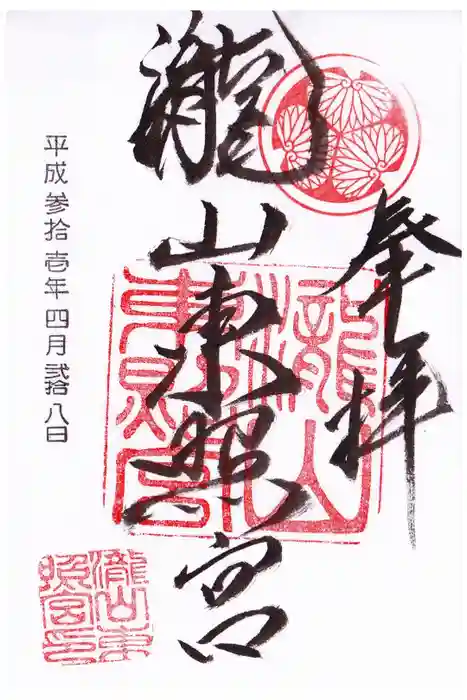 奉拝
瀧山東照宮
平成参拾壱年四月弐拾八日
瀧山東照宮
瀧山東照宮印